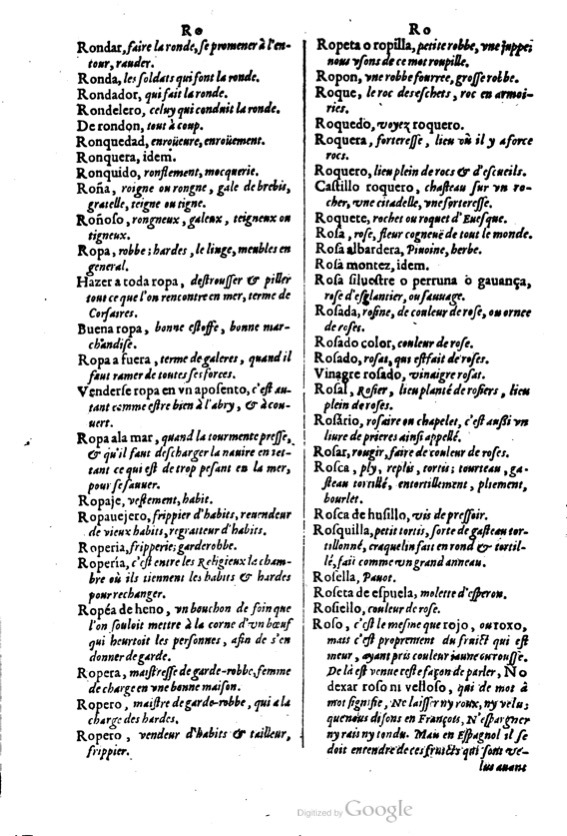 Ro
Rondar, faire la ronde, se promener à l'en-
tour, rauder.
Ronda, les soldats qui font la ronde.
Rondador, qui fait la ronde.
Rondelero, celuy qui conduit la ronde.
De rondon, tout à coup.
Ronquedad, enroüeure, enroüement.
Ronquera, idem.
Ronquido, ronflement, mocquerie.
Roña, roigne ou rongne, gale de brebis,
gratelle, teigne ou tigne.
Roñoso, rongneux, galeux, teigneux ou
tigneux.
Ropa, robbe; hardes, le linge, meubles en
general.
Hazer a toda ropa, destrousser & piller
tout ce que l'on rencontre en mer, terme de
Corsaires.
Buena ropa, bonne estoffe, bonne mar-
chandise.
Ropa a fuera, terme de galeres, quand il
faut ramer de toutes ses forces.
Venderse ropa en vn aposento, c'est au-
tant comme estre bien à l'abry, & à cou-
uert.
Ropa ala mar, quand la tourmente presse,
& qu'il faut descharger la nauire en iet-
tant ce qui est de trop pesant en la mer,
pour se sauuer.
Ropaje, vestement, habit.
Ropauejero, frippier d'habits, reuendeur
de vieux habits, regratteur d'habits.
Roperia, fripperie; garderobbe.
Ropería, c'est entre les Religieux la cham-
bre où ils tiennent les habits & hardes
pour rechanger.
Ropéa de heno, vn bouchon de foin que
l'on souloit mettre à la corne d'vn bœuf
qui heurtoit les personnes, afin de s'en
donner de garde.
Ropera, maistresse de garde-robbe, femme
de charge en vne bonne maison.
Ropero, maistre de garde-robbe, qui a la
charge des hardes.
Ropero, vendeur d'habits & tailleur,
frippier.
Ro
Ropeta o ropilla, petite robbe, vne juppe;
nous vsons de ce mot roupille.
Ropon, vne robbe fourree, grosse robbe.
Roque, le roc des eschets, roc en armoi-
ries.
Roquedo, voyez roquero.
Roquera, forteresse, lieu où il y a force
rocs.
Roquero, lieu plein de rocs & d'escueils.
Castillo roquero, chasteau sur vn ro-
cher, vne citadelle, vne forteresse.
Roquete, rochet ou roquet d'Euesque.
Rosa, rose, fleur cogneuë de tout le monde.
Rosa albardera, Piuoine, herbe.
Rosa montez, idem.
Rosa siluestre o perruna o gauança,
rose d'esglantier, ou sauuage.
Rosada, rosine, de couleur de rose, ou ornee
de roses.
Rosado color, couleur de rose.
Rosado, rosat, qui est fait de roses.
Vinagre rosado, vinaigre rosat.
Rosal, Rosier, lieu planté de rosiers, lieu
plein de roses.
Rosàrio, rosaire ou chapelet, c'est aussi vn
liure de prieres ainsi appellé.
Rosar, rougir, faire de couleur de roses.
Rosca, ply, replis, tortis; tourteau, ga-
steau tortillé, entortillement, pliement,
bourlet.
Rosca de husillo, vis de pressoir.
Rosquilla, petit tortis, sorte de gasteau tor-
tillonné, craquelin fait en rond & tortil-
lé, fait comme vn grand anneau.
Rosella, Pauot.
Roseta de espuela, molette d'esperon.
Rosiello, couleur de rose.
Roso, c'est le mesme que rojo, ou roxo,
mais c'est proprement du fruict qui est
meur, ayant pris couleur iaune ou rousse.
De là est venue ceste façon de parler, No
dexar roso ni velloso, qui de mot à
mot signifie, Ne laisser ny roux, ny velu;
que nous disons en François, N'espargner
ny rais ny tondu. Mais en Espagnol il se
doit entendre de ces fruicts qui sont ve-
lus auant
Digitized by Google